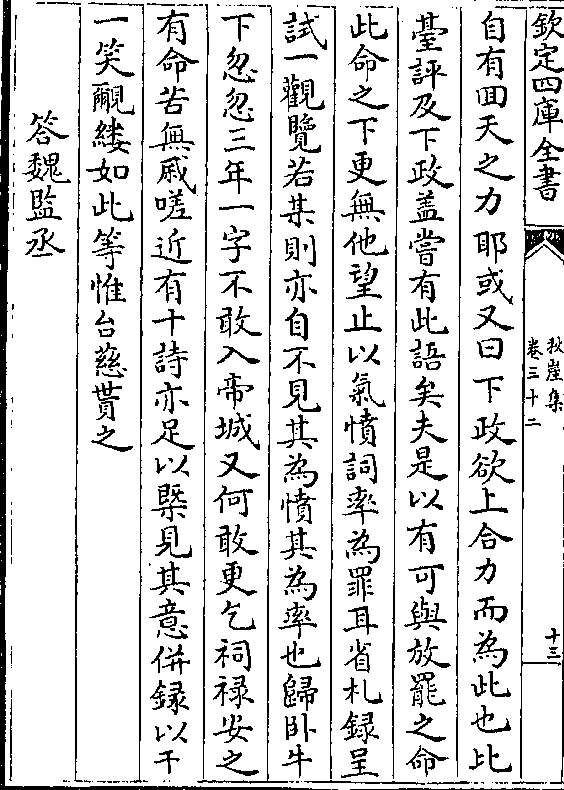 欽定四庫全書
秋崖集
卷三十二
十三
自有回天之力耶或又曰下政欲上合力而為此也比
臺評及下政盖嘗有此語矣夫是以有可與放罷之命
此命之下更無他望止以氣憤詞率為罪耳省札録呈
試一觀覽若某則亦自不見其為憤其為率也歸卧牛
下忽忽三年一字不敢入帝城又何敢更乞祠禄安之
有命若無戚嗟近有十詩亦足以槩見其意併録以干
一笑覼縷如此等惟台慈貰之
答魏監丞